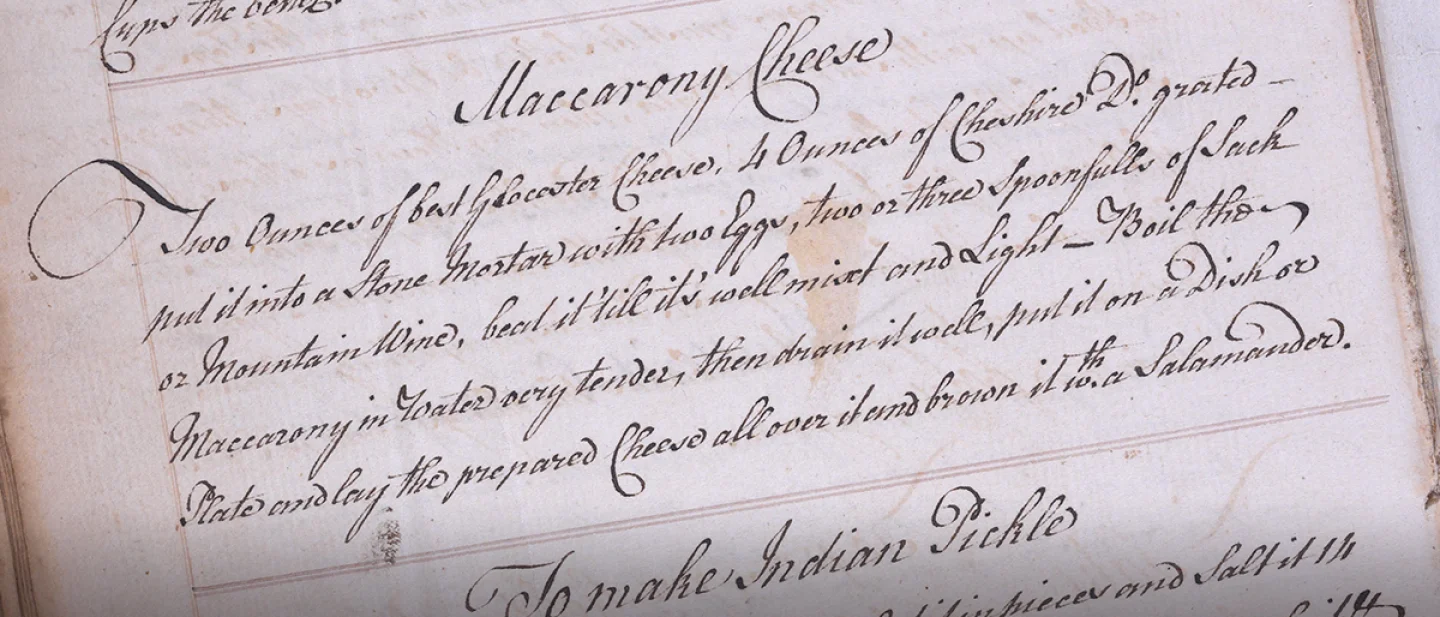 Cups the
Maccarony Cheese
Two Ounces of best Glocester Cheese, 4 Ounces of Cheshire Do. grated –
put it into a Stone Mortar with two Eggs, two or three Spoonfulls of Sack
or Mountain Wine, beat it 'till it's well mixt and Light – Boil the
Maccarony in Water very tender, then drain it well, put it on a Dish or
Plate and lay the prepared Cheese all over it and brown it wth. a Salamander.
To make Indian Pickle
in pieces and Salt it